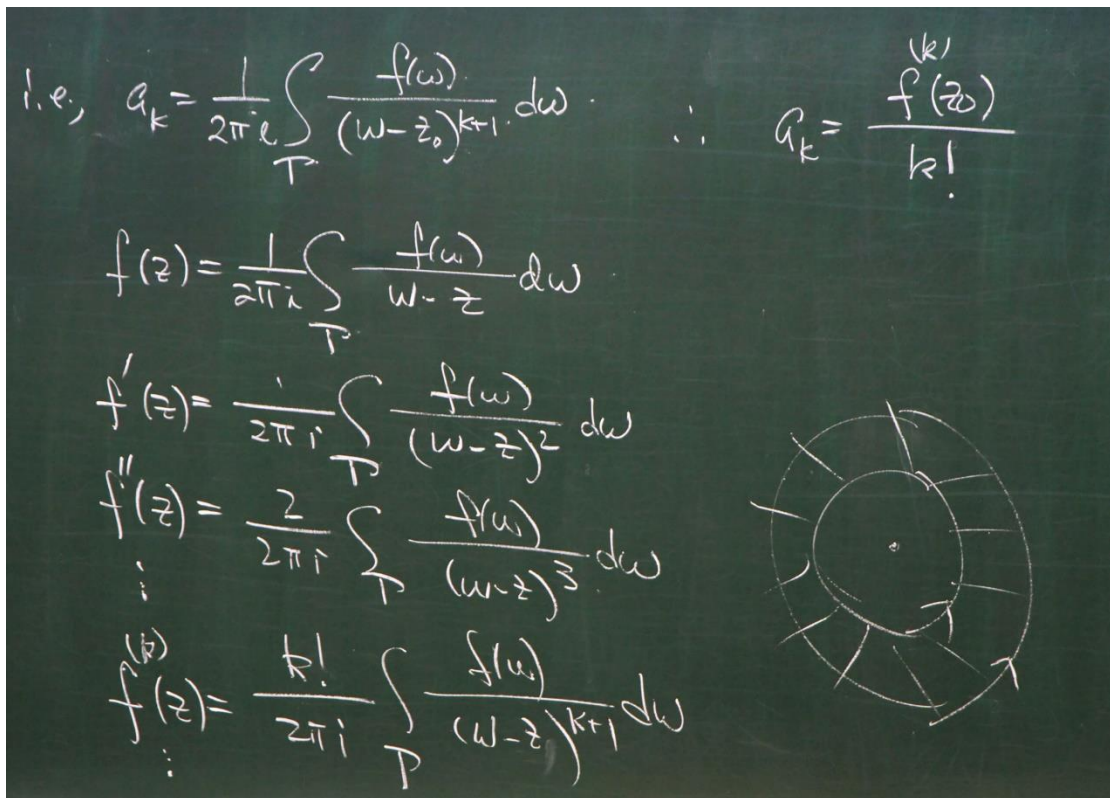 i.e., a_k = \frac{1}{2\pi i} \int_Γ \frac{f(ω)}{(ω-z_0)^{k+1}} dω. ∴ a_k = \frac{f^{(k)}(z_0)}{k!}
f(z) = \frac{1}{2\pi i} \int_Γ \frac{f(ω)}{ω-z} dω
f'(z) = \frac{1}{2\pi i} \int_Γ \frac{f(ω)}{(ω-z)^2} dω
f''(z) = \frac{2}{2\pi i} \int_Γ \frac{f(ω)}{(ω-z)^3} dω
⋮
f^{(k)}(z) = \frac{k!}{2\pi i} \int_Γ \frac{f(ω)}{(ω-z)^{k+1}} dω
⋮